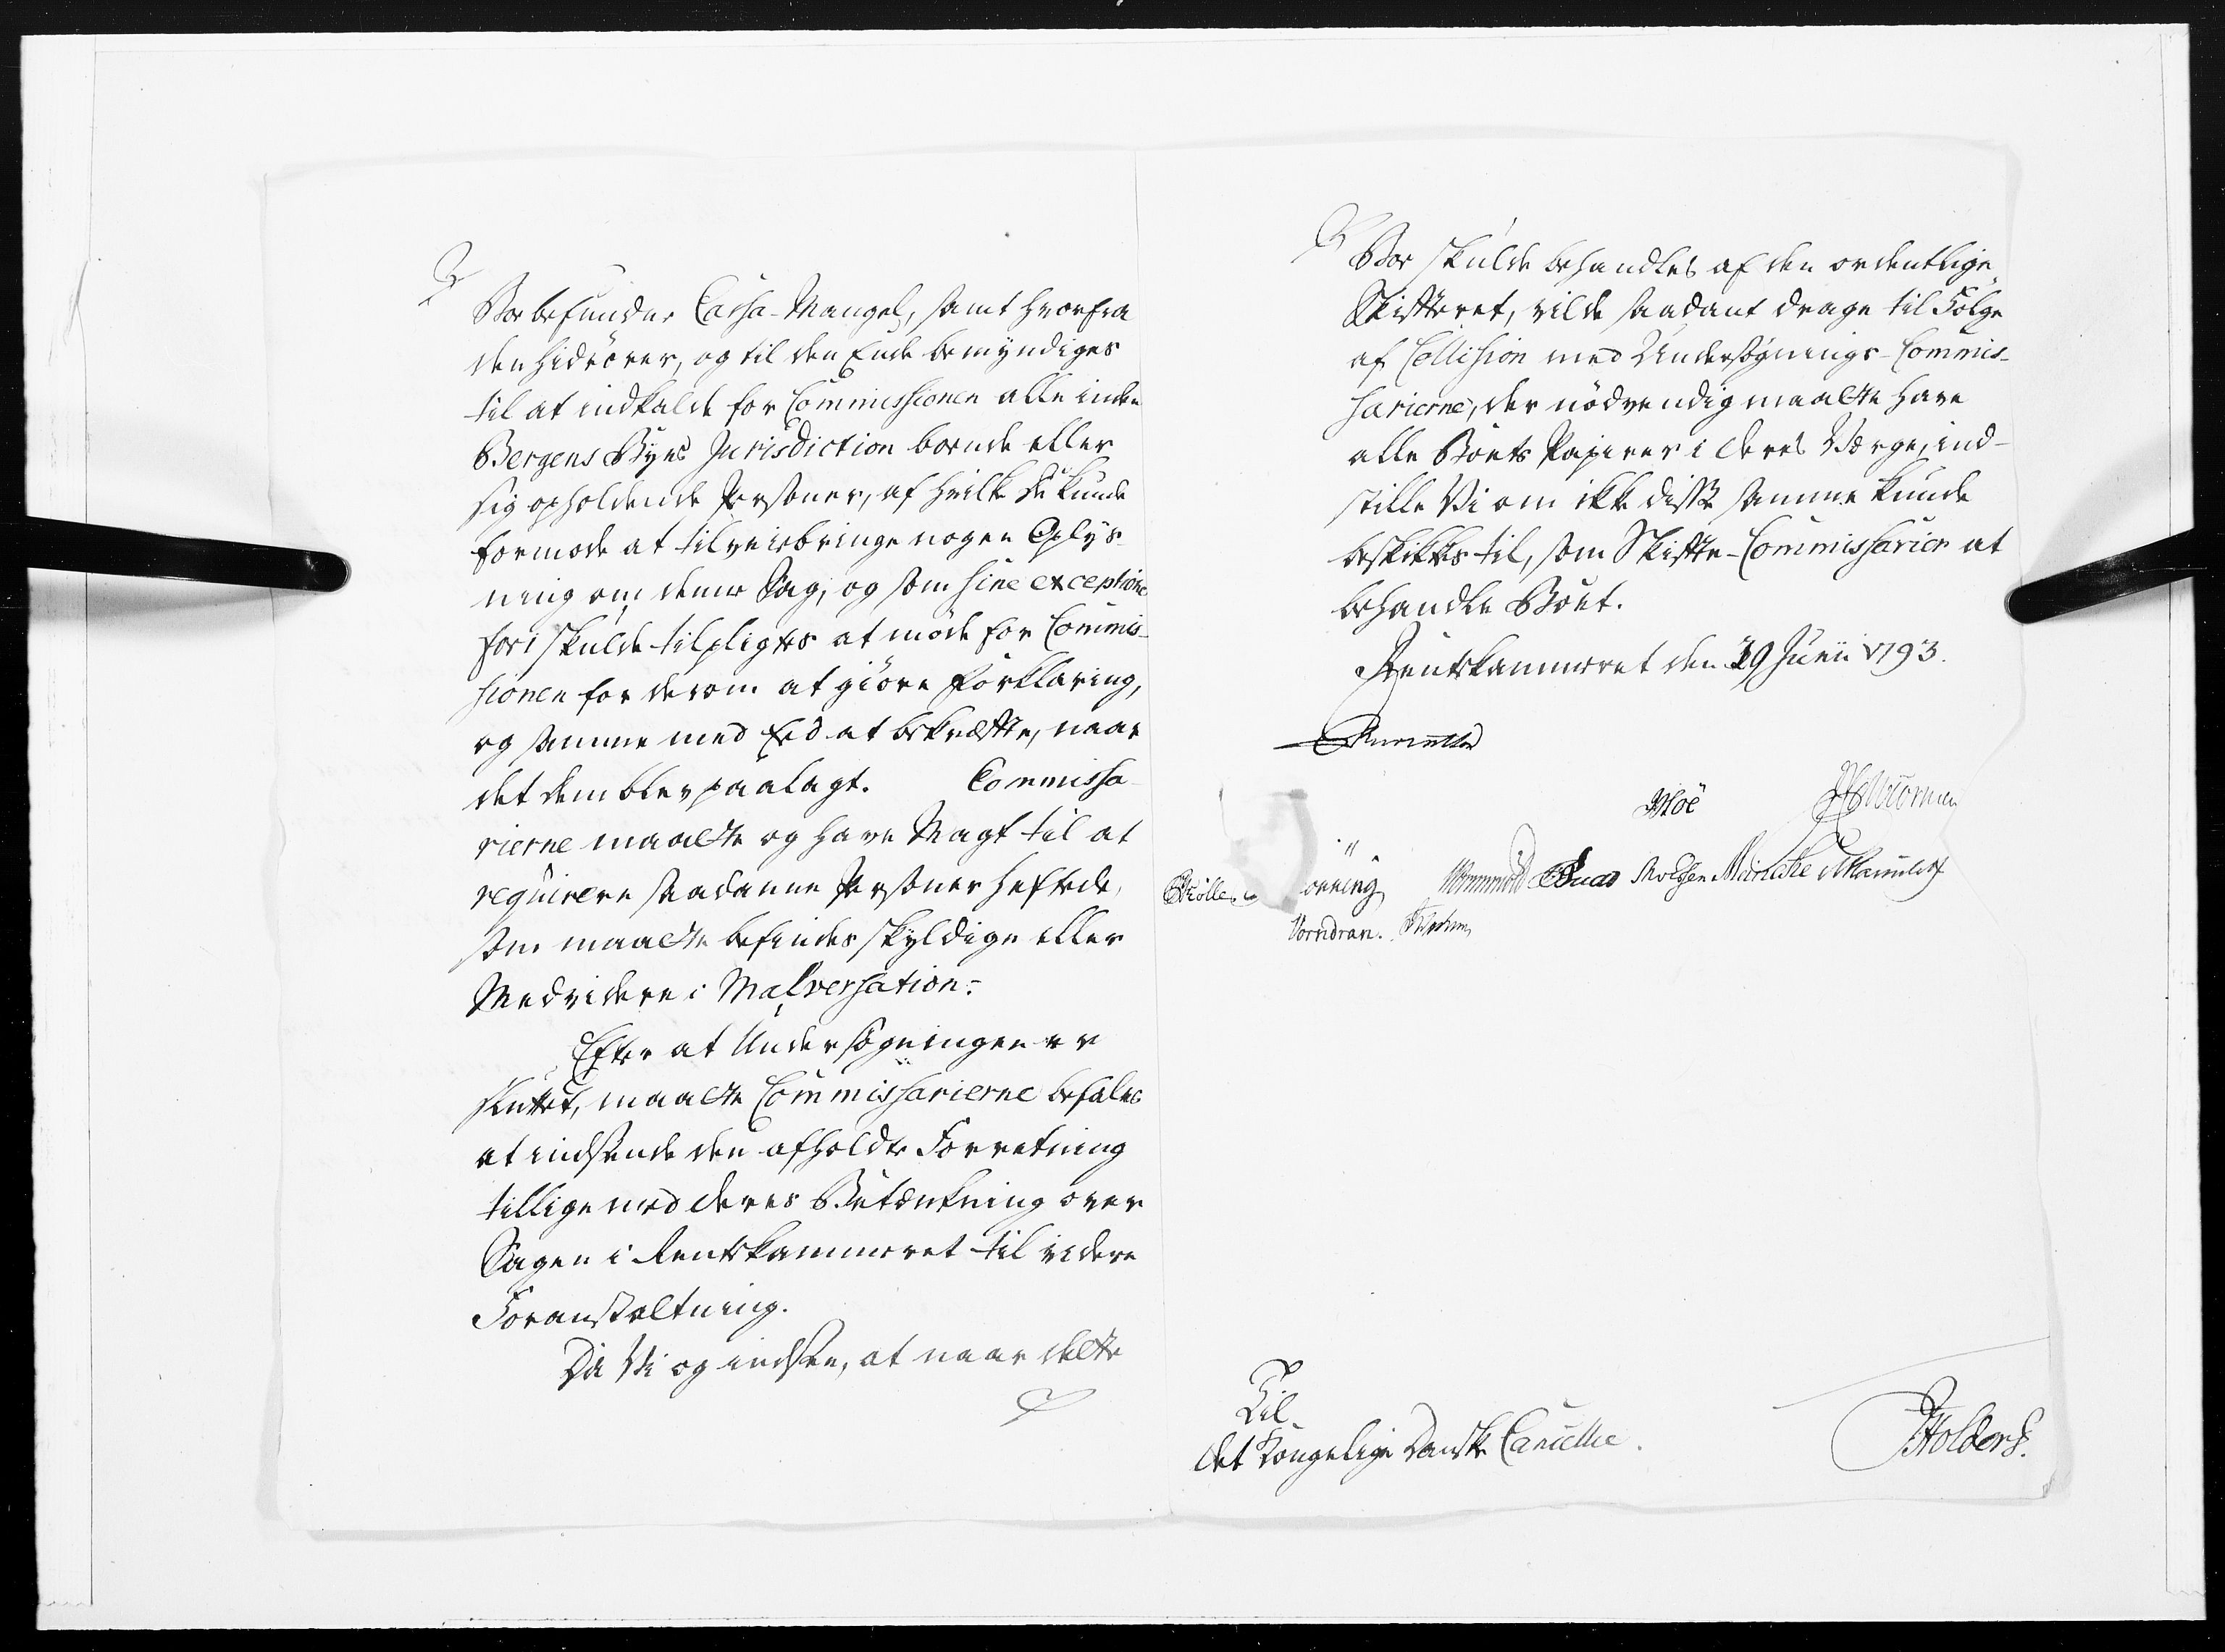 Boe befundne Cassa-Mangel, samt hvorfra
den hidrörer, og til den Ende bemyndiges
til at indkalde for Commissionen alle inden
Bergens Byes Jurisdiction boende eller
sig opholdende Personer, af hvilke de kunde
formode at tilveiebringe nogen Oplys-
ning om denne Sag, og som sine exceptione
fori skulde tilpligtes at möde for Commis-
sionen for derom at giöre Forklaring,
og samme med Eed at bekræfte, naar
det dem blev paalagt. Commissa-
rierne maatte og have Magt til at
requirere saadanne Personer heftede,
som maatte befindes skyldige eller
Medvidere i Malversation.
Efter at Undersögningen er
sluttet, maatte Commissarierne befales
at indsende den afholdte Forretning
tillige med deres Betænkning over
Sagen i Rentekammeret til videre
Foranstaltning.
Da Vi og indsee, at naar dette
Boe skulde behandles af den ordentlige
Skifteret, vilde saadant drage til Fölge
af Collision med Undersögnings-Commis-
sarierne, der nödvendig maatte have
alle Boets Papirer i deres Værge, ind-
stille Vi om ikke disse samme kunde
beskikkes til, som Skifte-Commissarier at
behandle Boet.
Rentekammeret den 29 Junii 1793.
Reventlow
Moe JHWormen
Möller Wormskiold Buas Molzen Meincke
Vorndran.
Til
det Kongelige Danske Cancellie.
Holbers.